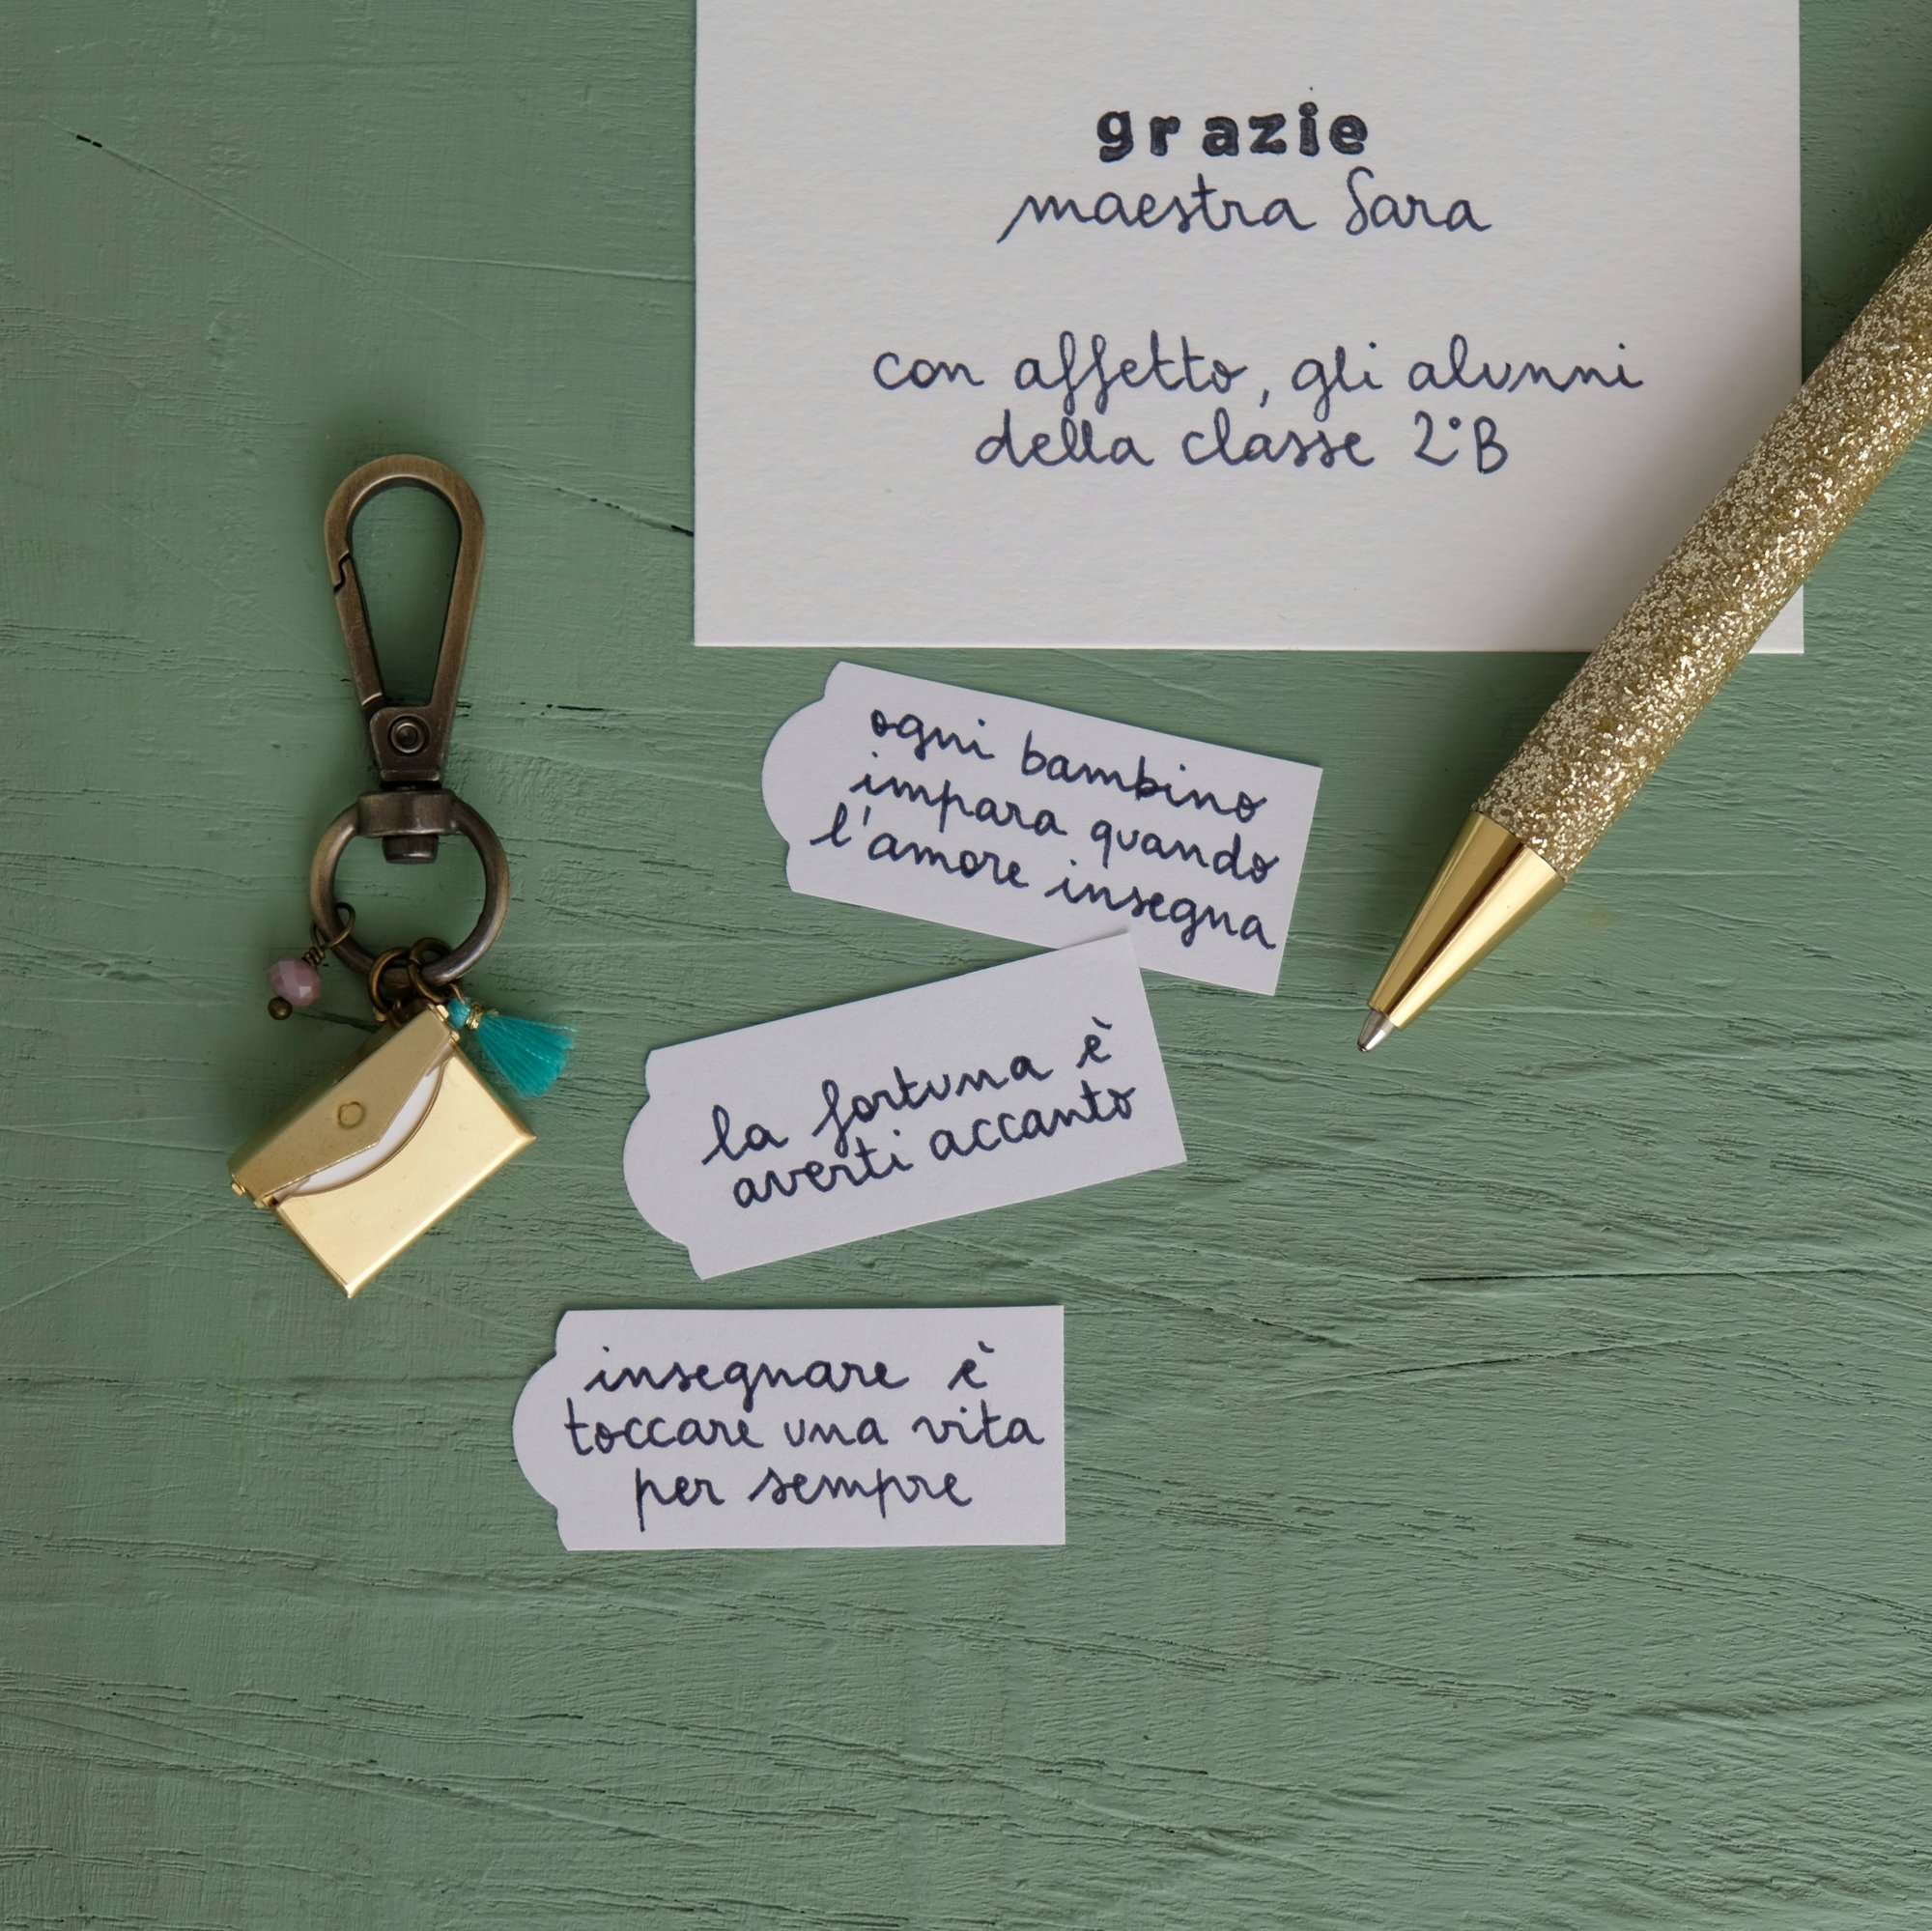 grazie
maestra Sara
con affetto, gli alunni
della classe 2°B
ogni bambino
impara quando
l'amore insegna
la fortuna è
averti accanto
insegnare è
toccare una vita
per sempre